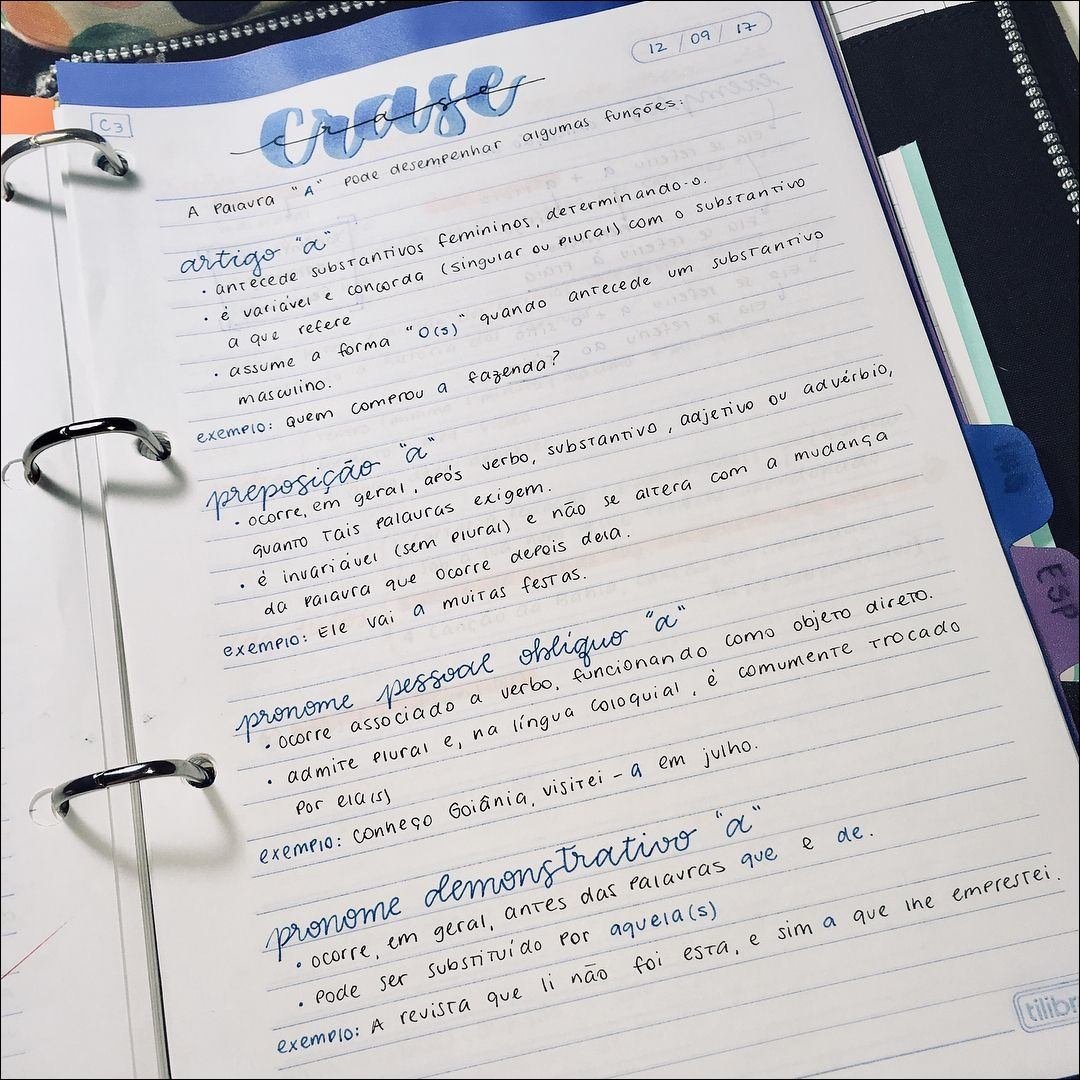 12 / 09 / 17
C3
crase
crase
A palavra "A" pode desempenhar algumas funções:
artigo "a"
• antecede substantivos femininos, determinando-o.
• é variável e concorda (singular ou plural) com o substantivo
a que refere
• assume a forma "O(s)" quando antecede um substantivo
masculino.
exemplo: quem comprou a fazenda?
preposição "a"
• ocorre, em geral, após verbo, substantivo, adjetivo ou advérbio,
quanto tais palavras exigem.
• é invariável (sem plural) e não se altera com a mudança
da palavra que ocorre depois dela.
exemplo: Ele vai a muitas festas.
pronome pessoal oblíquo "a"
• ocorre associado a verbo, funcionando como objeto direto.
• admite plural e, na língua coloquial, é comumente trocado
por ela(s)
exemplo: conheço Goiânia, visitei-a em julho.
pronome demonstrativo "a"
• ocorre, em geral, antes das palavras que e de.
• pode ser substituído por aquela(s)
exemplo: A revista que li não foi esta, e sim a que lhe emprestei.
ESP